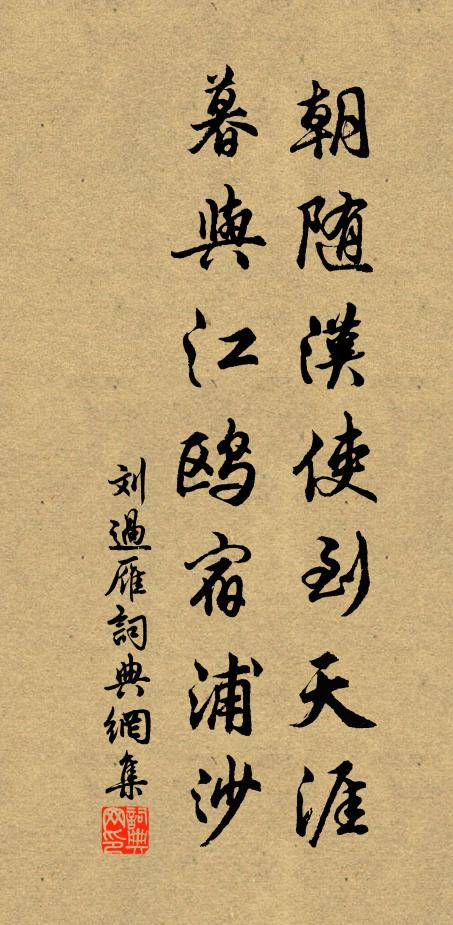 朝随漢使到天涯
暮與江鸥宿浦沙
刘過雁詞典網集
詞典網印